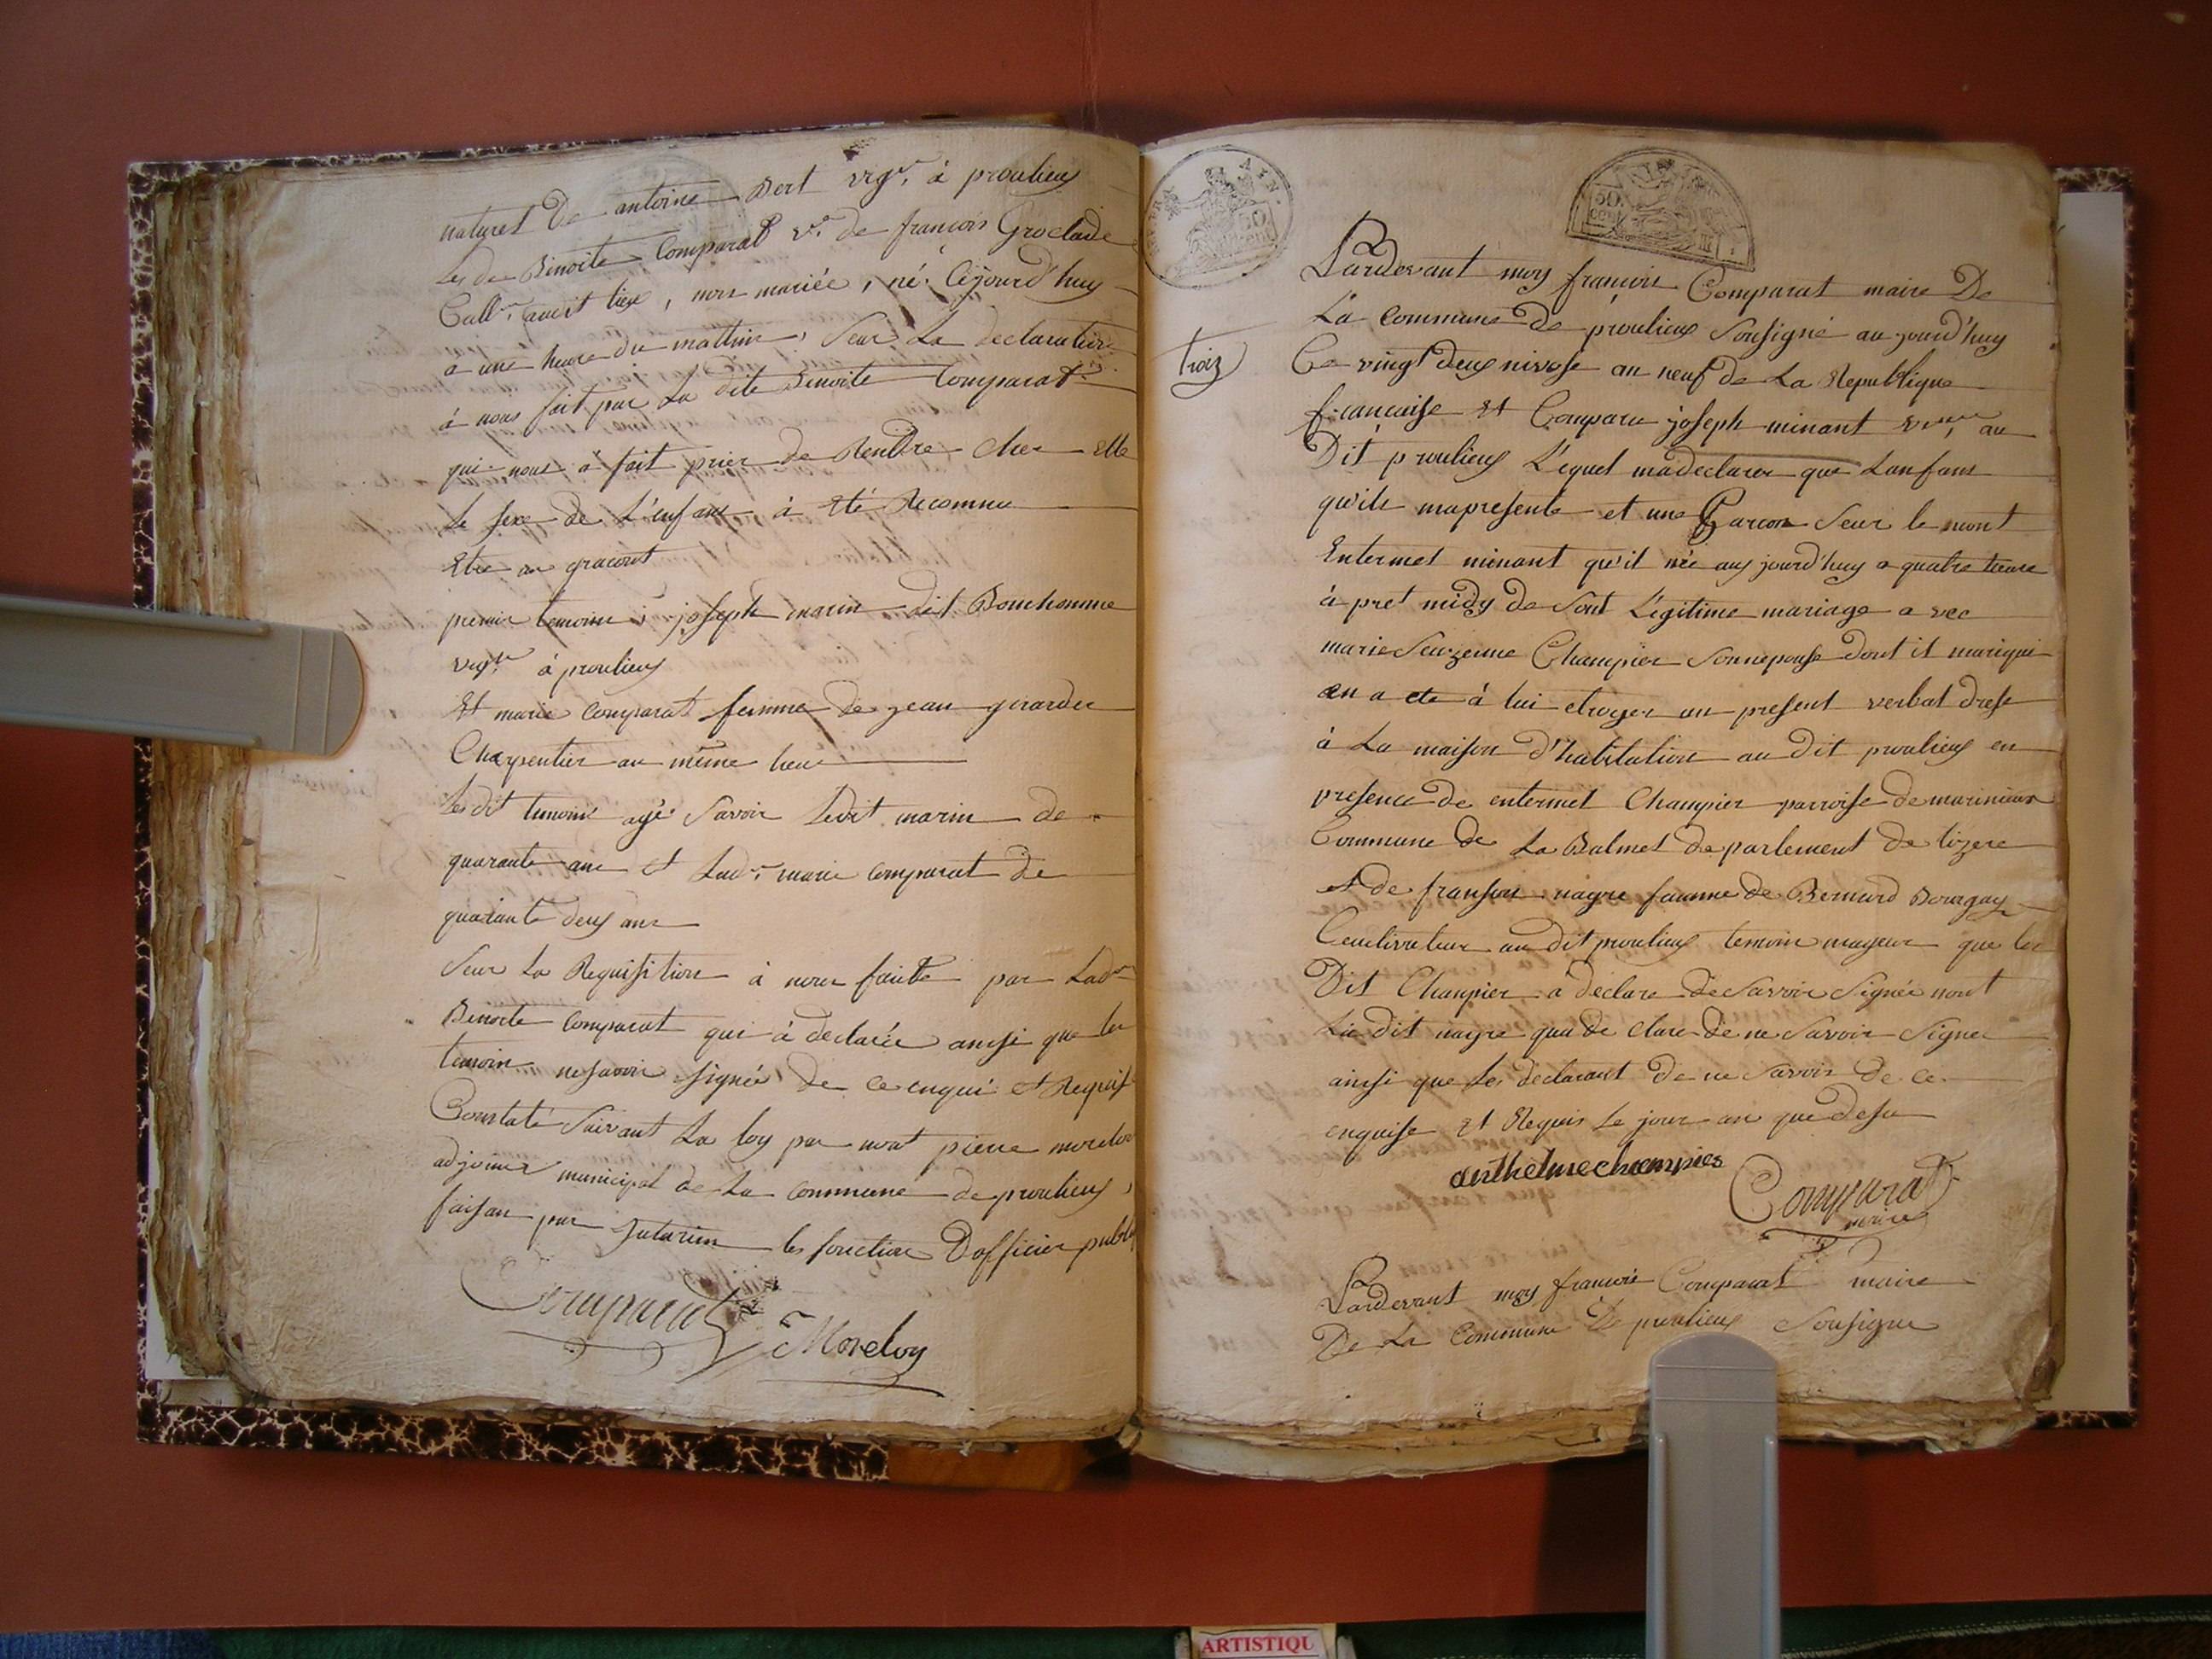 naturel De antoine Bert vigr. à proulieux
Les de Binoite Comparat ve. de francois Groclade
Cullr. audit lieu, non mariée, né. Cejourd'huy
a une heure du mattin, Seur La declaration
à nous fait par La dite Binoite Comparat
qui nous a fait prier de Rendre cher Elle
Le sexe de L'enfans à Eté Reconnu
Etre un gracont
premier temoins, joseph marin dit Bonhomme
vigr. à proulieux
Et marie Comparat femme de jean girardu
Charpentier au même lieu
Les dit temoins agé Savoir Ledit marin de
quarante ans et Lade. marie Comparat de
quarante deux ans
Seur La Requisition à nous faite par Lade
Binoite Comparat qui à declarée ansi que les
temoin ne savoir signée de ce enqui et Requis
Constaté Suivant La loy par mont pierre morelon
adjoint municipal de La Commune de proulieux,
faisan par Intarim les fonction D'officier public
Comparat Moreloy
AIN.
50
50
CENT
troiz
Pardevant moy françois Comparat maire De
La Commune de proulieux Sousigné au jourd'huy
Ce vingt deux nivose an neuf de La Republique
française Et Comparu joseph minant au
Dit proulieux L'equel madeclarer que Lanfans
qu'ils mapresenté et une Garcon Seur le nont
Entermet minant qu'il née auy jourd'huy a quatre heure
à pret midy de Sont Legitime mariage a vec
marie Seuzenne Champier Sonnepouse dont il mariqui
en a cte à lui etroyer un present verbat drese
à La maison D'habitation au Dit proulieux en
presence de entermet Champier parroise de marinieux
Commune de La Balmet de parlement de lizere
et de franson nagre famme de Bernard Bourgay
Ceultivateur au dit proulieux temoin mageur que les
Dit Champier a declare de Savoir Signée nont
La dit nagre qua de clare de ne Savoir Signer
ainsi que Les declarant de ne Savoir de ce
enquise Et Requis Le jour an que desu
anthelme champies
Comparat
maire
Pardevant moy francois Comparat maire
De La Commune De proulieux Sousigne
ARTISTIQU